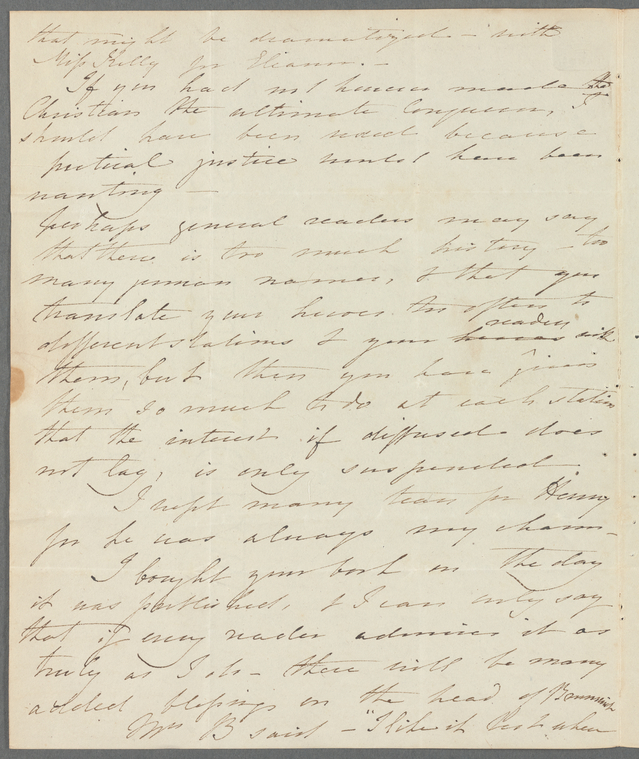 that might be dramatized – with
Miss Kelly for Eleanor. –
If you had not however made the
Christian the ultimate Conqueror, I
should have been vexed because
poetical justice would have been
wanting –
Perhaps general readers may say
that there is too much history – too
many human names, & that you
translate your heroes too often to
different stations & your readers with
them, but then you have given
them so much to do at each station
that the interest if diffused does
not lag, is only suspended.
I wept many tears for Henry
for he was always my
I bought your book on the day
it was published, & I can only say
that if every reader admires it as
truly as I do – there will be many
added blessings on the head of
Mrs B said – "I like it best when